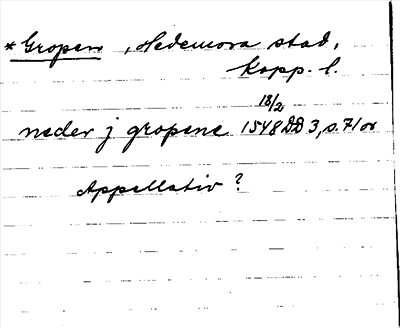 *Gropen, Hedemora stad,
Kopp. l.
18/2
neder j gropene 1548 DD 3, s. 71 or
Appellativ?